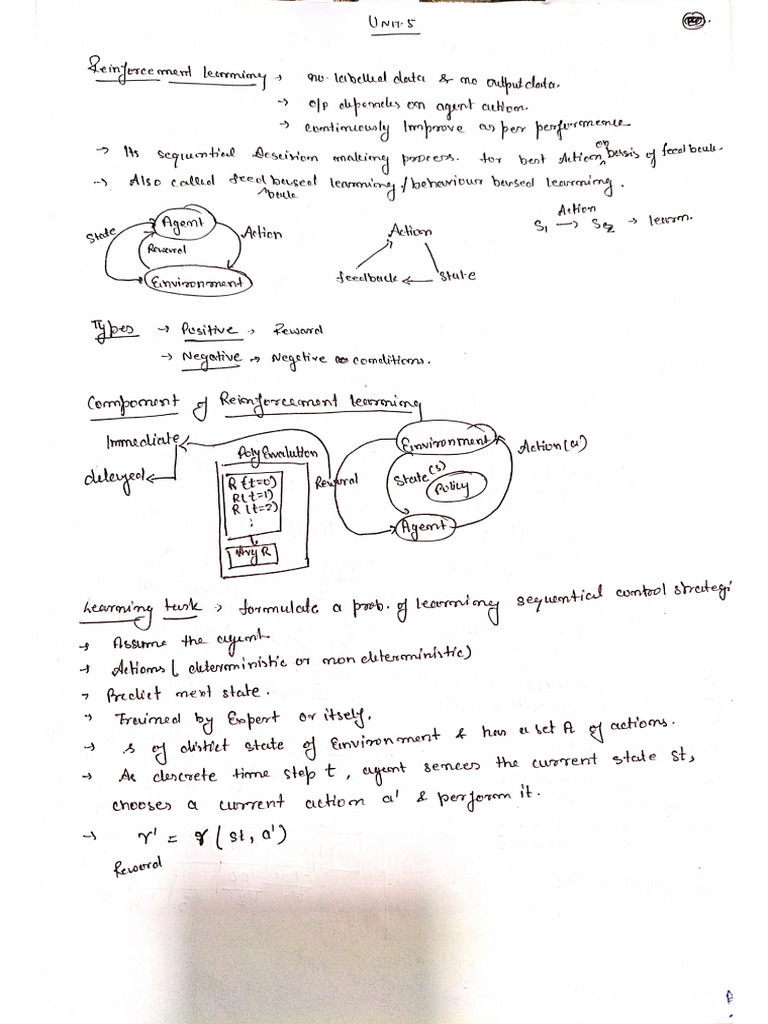 UNIT-5
Reinforcement learning → no labelled data & no output data.
→ o/p depends on agent action.
→ continuously Improve as per performence
→ Its sequential Descision making process. for best Action on bersis of feedback.
→ Also called feedback based learning / behaviour based learning.
State
Agent
Reward
Action
Environment
Action
feedback ← State
Action
S1 → S2 → learn.
Types → Positive → Reward
→ Negative → Negetive conditions.
Component of Reinforcement learning
Immediate
delayed
Poly Evalution
R (t=0)
R(t=1)
R (t=2)
Avy R
Reward
Environment
State(s)
Policy
Agent
Action(a)
Learning task → formulate a prob. of learning sequential control strategi
→ Assume the agent
→ Actions ( deterministic or non deterministic)
→ Predict next state.
→ Trained by Expert or itself.
→ s of distict state of Environment & has a set A of actions.
→ At descrete time step t, agent sences the current state st,
chooses a current action a' & perform it.
→ r' = r ( st, a')
Reward